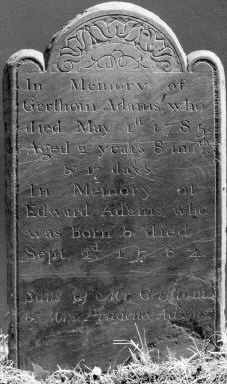 In Memory of
Gershom Adams, who
died May 1st 1785,
Aged 2 years 8 mon.ths
& 17 days.
In Memory of
Edward Adams, who
was Born & died
Sept. 2d. 1784.
Sons of Mr. Gershom
& Mrs. Prudence Adams